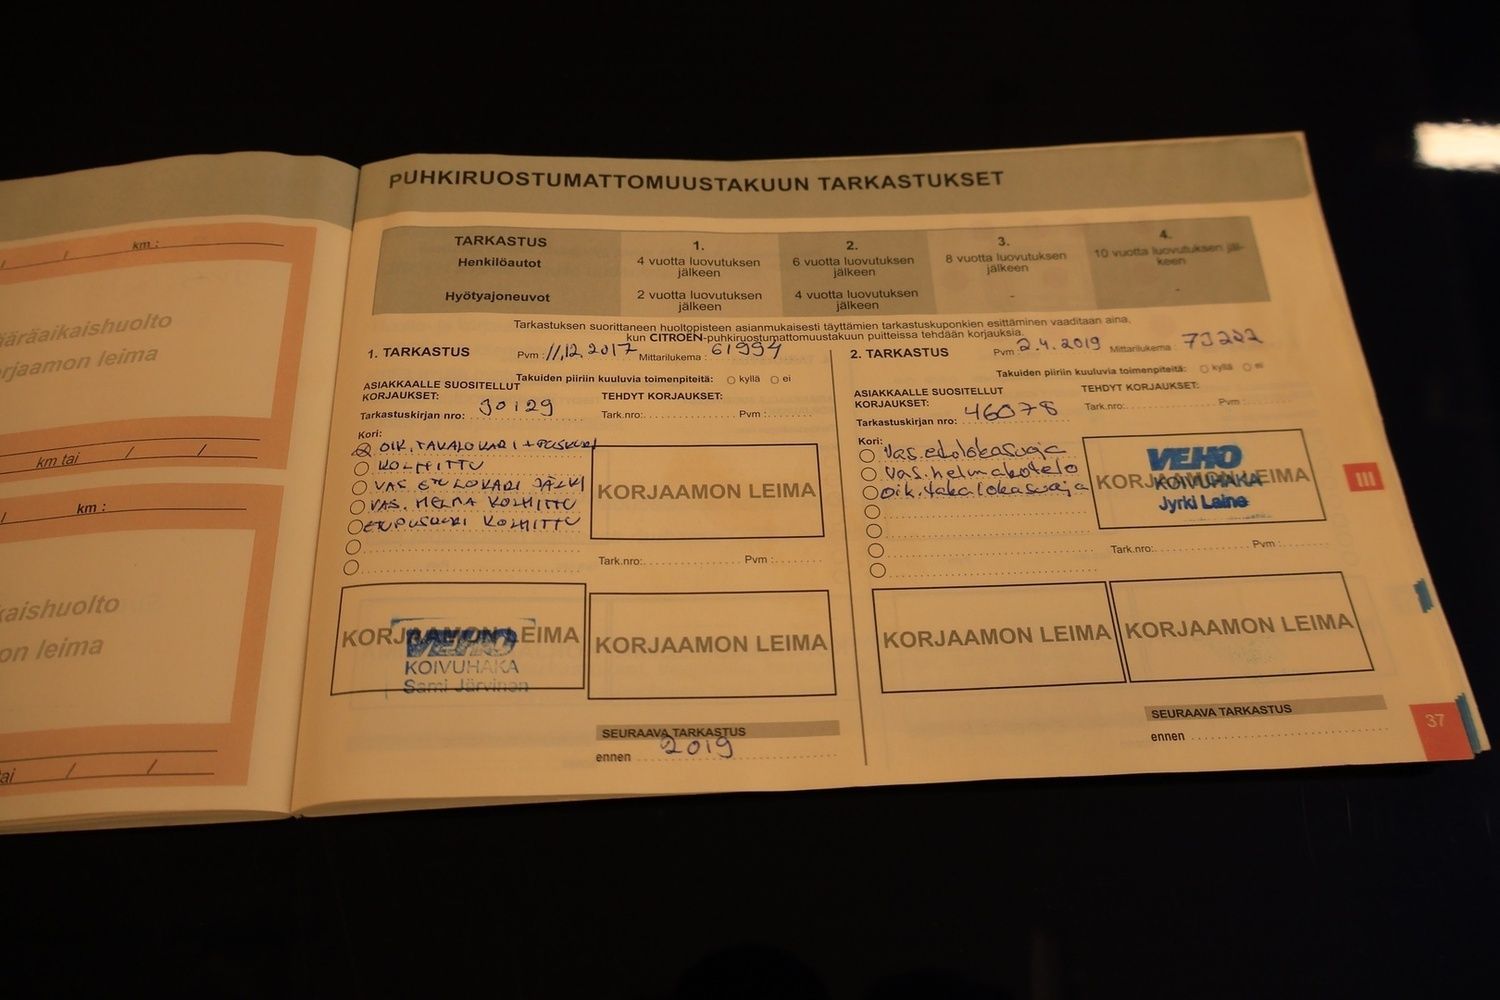 km :
ääräaikaishuolto
rjaamon leima
km tai / /
/ km :
kaishuolto
on leima
tai / /
PUHKIRUOSTUMATTOMUUSTAKUUN TARKASTUKSET
TARKASTUS 1. 2. 3. 4.
Henkilöautot 4 vuotta luovutuksen jälkeen 6 vuotta luovutuksen jälkeen 8 vuotta luovutuksen jälkeen 10 vuotta luovutuksen jäl-keen
Hyötyajoneuvot 2 vuotta luovutuksen jälkeen 4 vuotta luovutuksen jälkeen - -
Tarkastuksen suorittaneen huoltopisteen asianmukaisesti täyttämien tarkastuskuponkien esittäminen vaaditaan aina,
kun CITROËN-puhkiruostumattomuustakuun puitteissa tehdään korjauksia.
1. TARKASTUS Pvm : 11,12.2017 Mittarilukema : 61994
Takuiden piiriin kuuluvia toimenpiteitä: kyllä ei
ASIAKKAALLE SUOSITELLUT
KORJAUKSET: TEHDYT KORJAUKSET:
Tarkastuskirjan nro: 30129 Tark.nro: Pvm :
Kori:
OIK. TAKALOKARI + PUSKURI
KOLHITTU
VAS ETU LOKARI JÄLKI
VAS. HELMA KOLHITTU
ETUPUSKURI KOLHITTU
KORJAAMON LEIMA
Tark.nro: Pvm :
KORJAAMON LEIMA
VEHO
KOIVUHAKA
Sami Järvinen
KORJAAMON LEIMA
SEURAAVA TARKASTUS
ennen 2019
2. TARKASTUS Pvm : 2.4.2019 Mittarilukema : 73222
Takuiden piiriin kuuluvia toimenpiteitä: kyllä ei
ASIAKKAALLE SUOSITELLUT
KORJAUKSET: TEHDYT KORJAUKSET:
Tarkastuskirjan nro: 46078 Tark.nro: Pvm :
Kori:
Vas. etulokasuoja
Vas. helmakotelo
Oik. takalokasuoja
KORJAAMON LEIMA
VEHO
KOIVUHAKA
Jyrki Laine
Tark.nro: Pvm :
KORJAAMON LEIMA
KORJAAMON LEIMA
SEURAAVA TARKASTUS
ennen
III
37